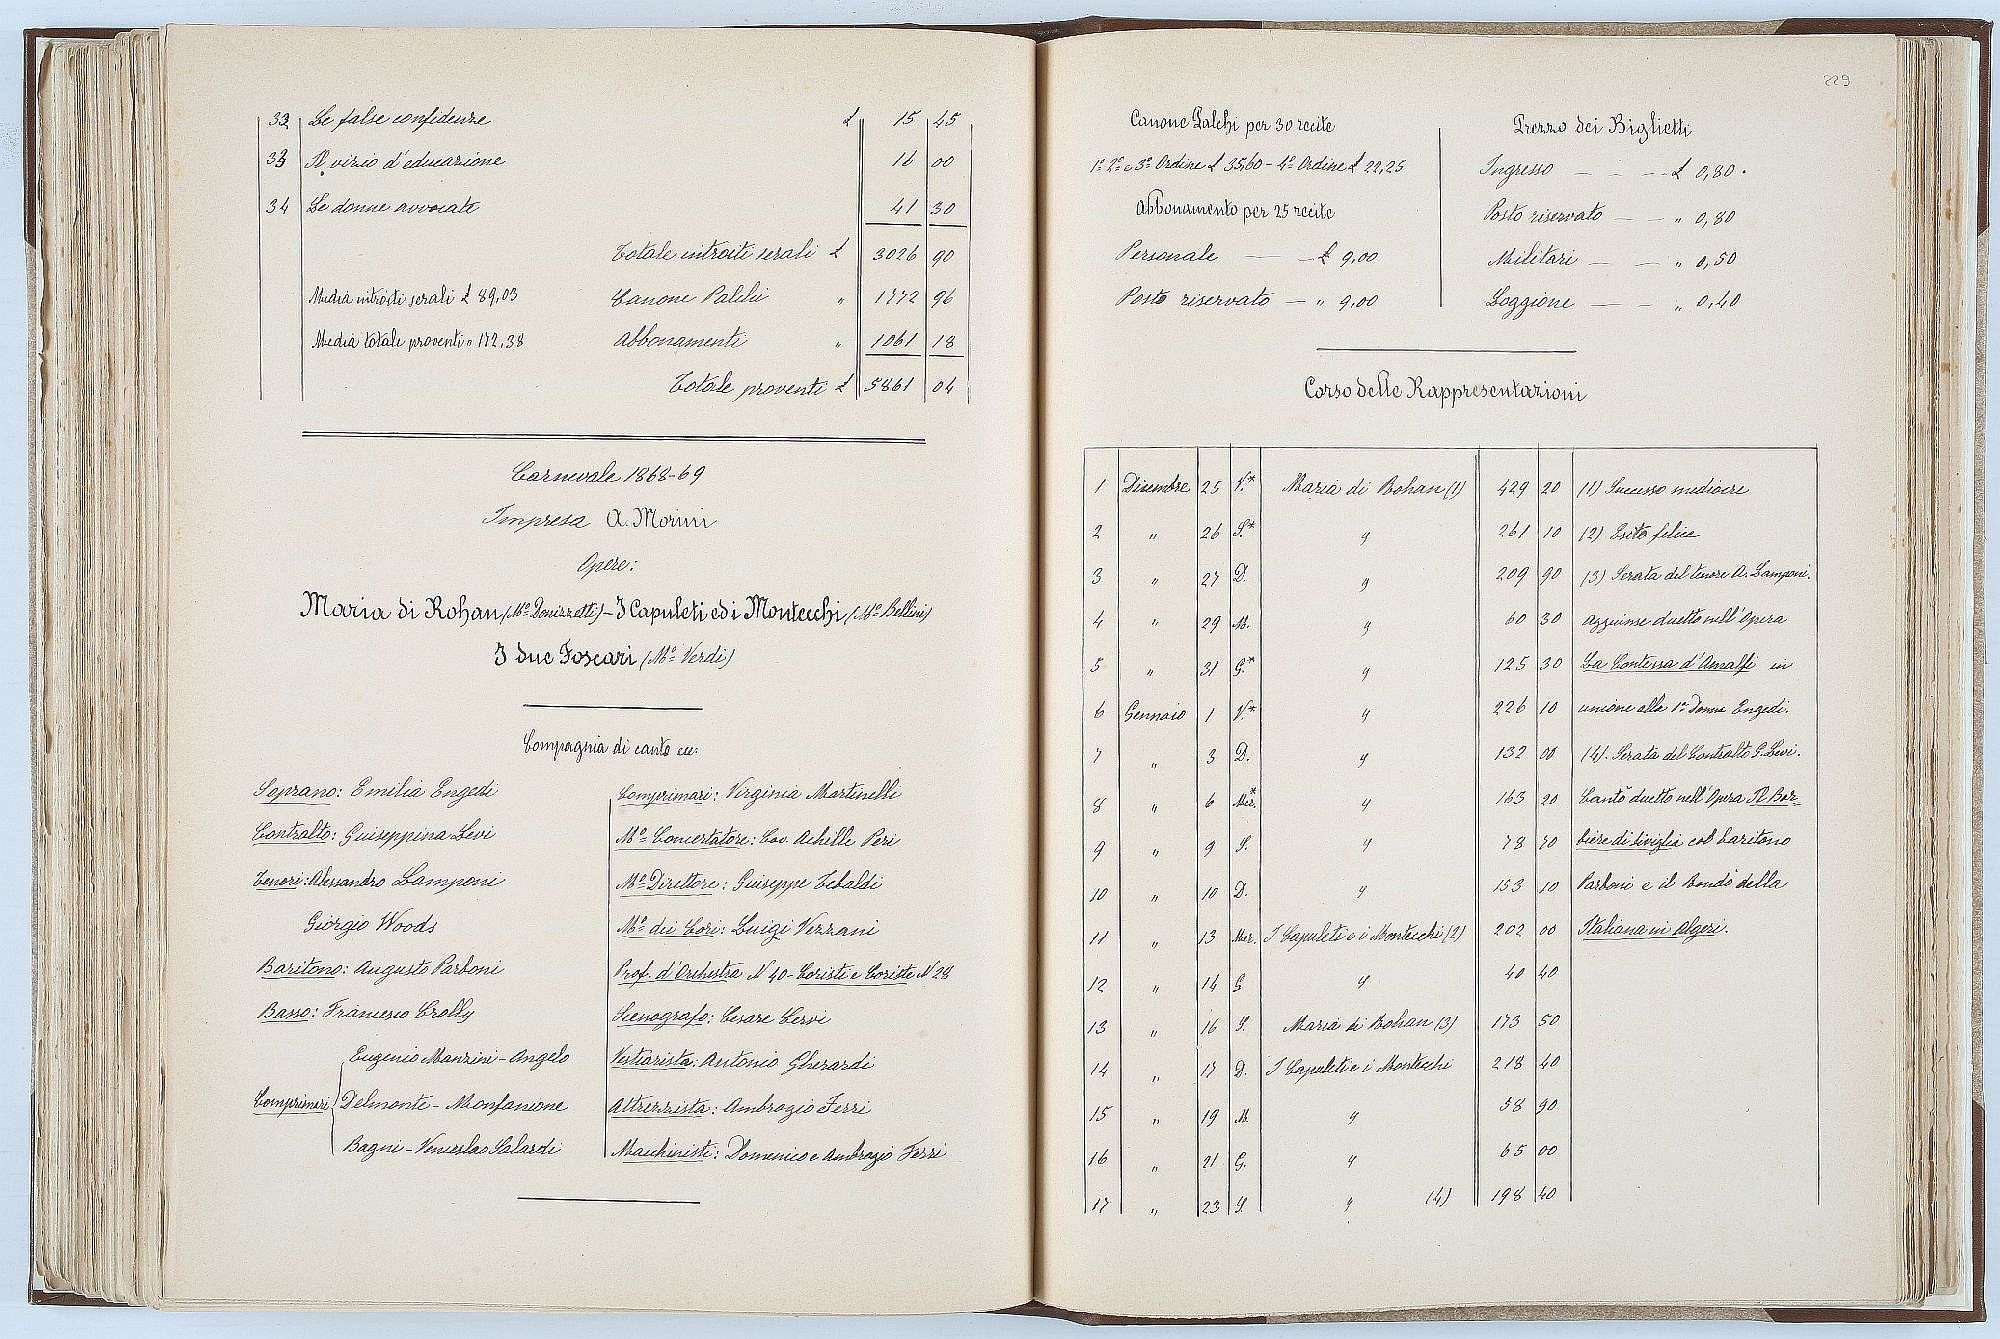 32 Le false confidenze £ 15 45
33 Il vizio d'educazione 11 00
34 Le donne avvocate 41 30
Totale introiti serali £ 3026 90
Media introiti serali £ 89,03 Canone Palchi „ 1772 96
Media totale proventi „ 172,38 Abbonamenti „ 1061 18
Totale proventi £ 5861 04
Carnevale 1868-69
Impresa A. Morini
Opere:
Maria di Rohan (Mo. Donizzetti) - I Capuleti ed i Montecchi (Mo. Bellini)
I due Foscari (Mo. Verdi)
Compagnia di canto ecc:
Soprano: Emilia Engedi
Contralto: Guiseppina Levi
Tenori: Alessandro Lamponi
Giorgio Woods
Baritono: Augusto Parboni
Basso: Francesco Crolly
Comprimari Eugenio Manzini - Angelo
Delmonte - Monfancone
Bagni - Venceslao Salardi
Comprimari: Virginia Martinelli
Mo. Concertatore: Cav. Achille Peri
Mo. Direttore: Guiseppe Tebaldi
Mo. dei Cori: Luigi Vezzani
Prof. d'Orchestra N 40 - Coristi e Coriste N 28
Scenografo: Cesare Cervi
Vestiarista: Antonio Gherardi
Attrezzista: Ambrogio Ferri
Macchinisti: Domenico e Ambrogio Ferri
229
Canone Palchi per 30 recite
1o. 2o. e 3o. Ordine £ 35,60 - 4o. Ordine £ 22,25
Abbonamento per 25 recite
Personale — — £ 9.00
Posto riservato — „ 9.00
Prezzo dei Biglietti
Ingresso — — — £ 0,80.
Posto riservato — — „ 0,80
Militari — — „ 0,50
Loggione — — „ 0,40
Corso delle Rappresentazioni
1 Dicembre 25 V.* Maria di Rohan (1) 429 20 (1) Successo mediocre
2 „ 26 S.* „ 261 10 (2) Esito felice
3 „ 27 D. „ 209 90 (3) Serata del tenore A. Lamponi.
4 „ 29 M. „ 60 30 aggiunse duetto nell'Opera
5 „ 31 G.* „ 125 30 La Contessa d'Amalfi in
6 Gennaio 1 V.* „ 226 10 unione alla 1a. Donna Engedi.
7 „ 3 D. „ 132 00 (4). Serata del Contralto G. Levi.
8 „ 6 Mer.* „ 163 20 Cantò duetto nell'Opera Il Bar-
9 „ 9 S. „ 78 70 biere di Siviglia col baritono
10 „ 10 D. „ 153 10 Parboni e il Rondò della
11 „ 13 Mer. I Capuleti e i Montecchi (2) 202 00 Italiana in Algeri.
12 „ 14 G „ 40 40
13 „ 16 S. Maria di Rohan (3) 173 50
14 „ 17 D. I Capuleti e i Montecchi 218 40
15 „ 19 M. „ 58 90
16 „ 21 G. „ 65 00
17 „ 23 S. „ (4) 198 40